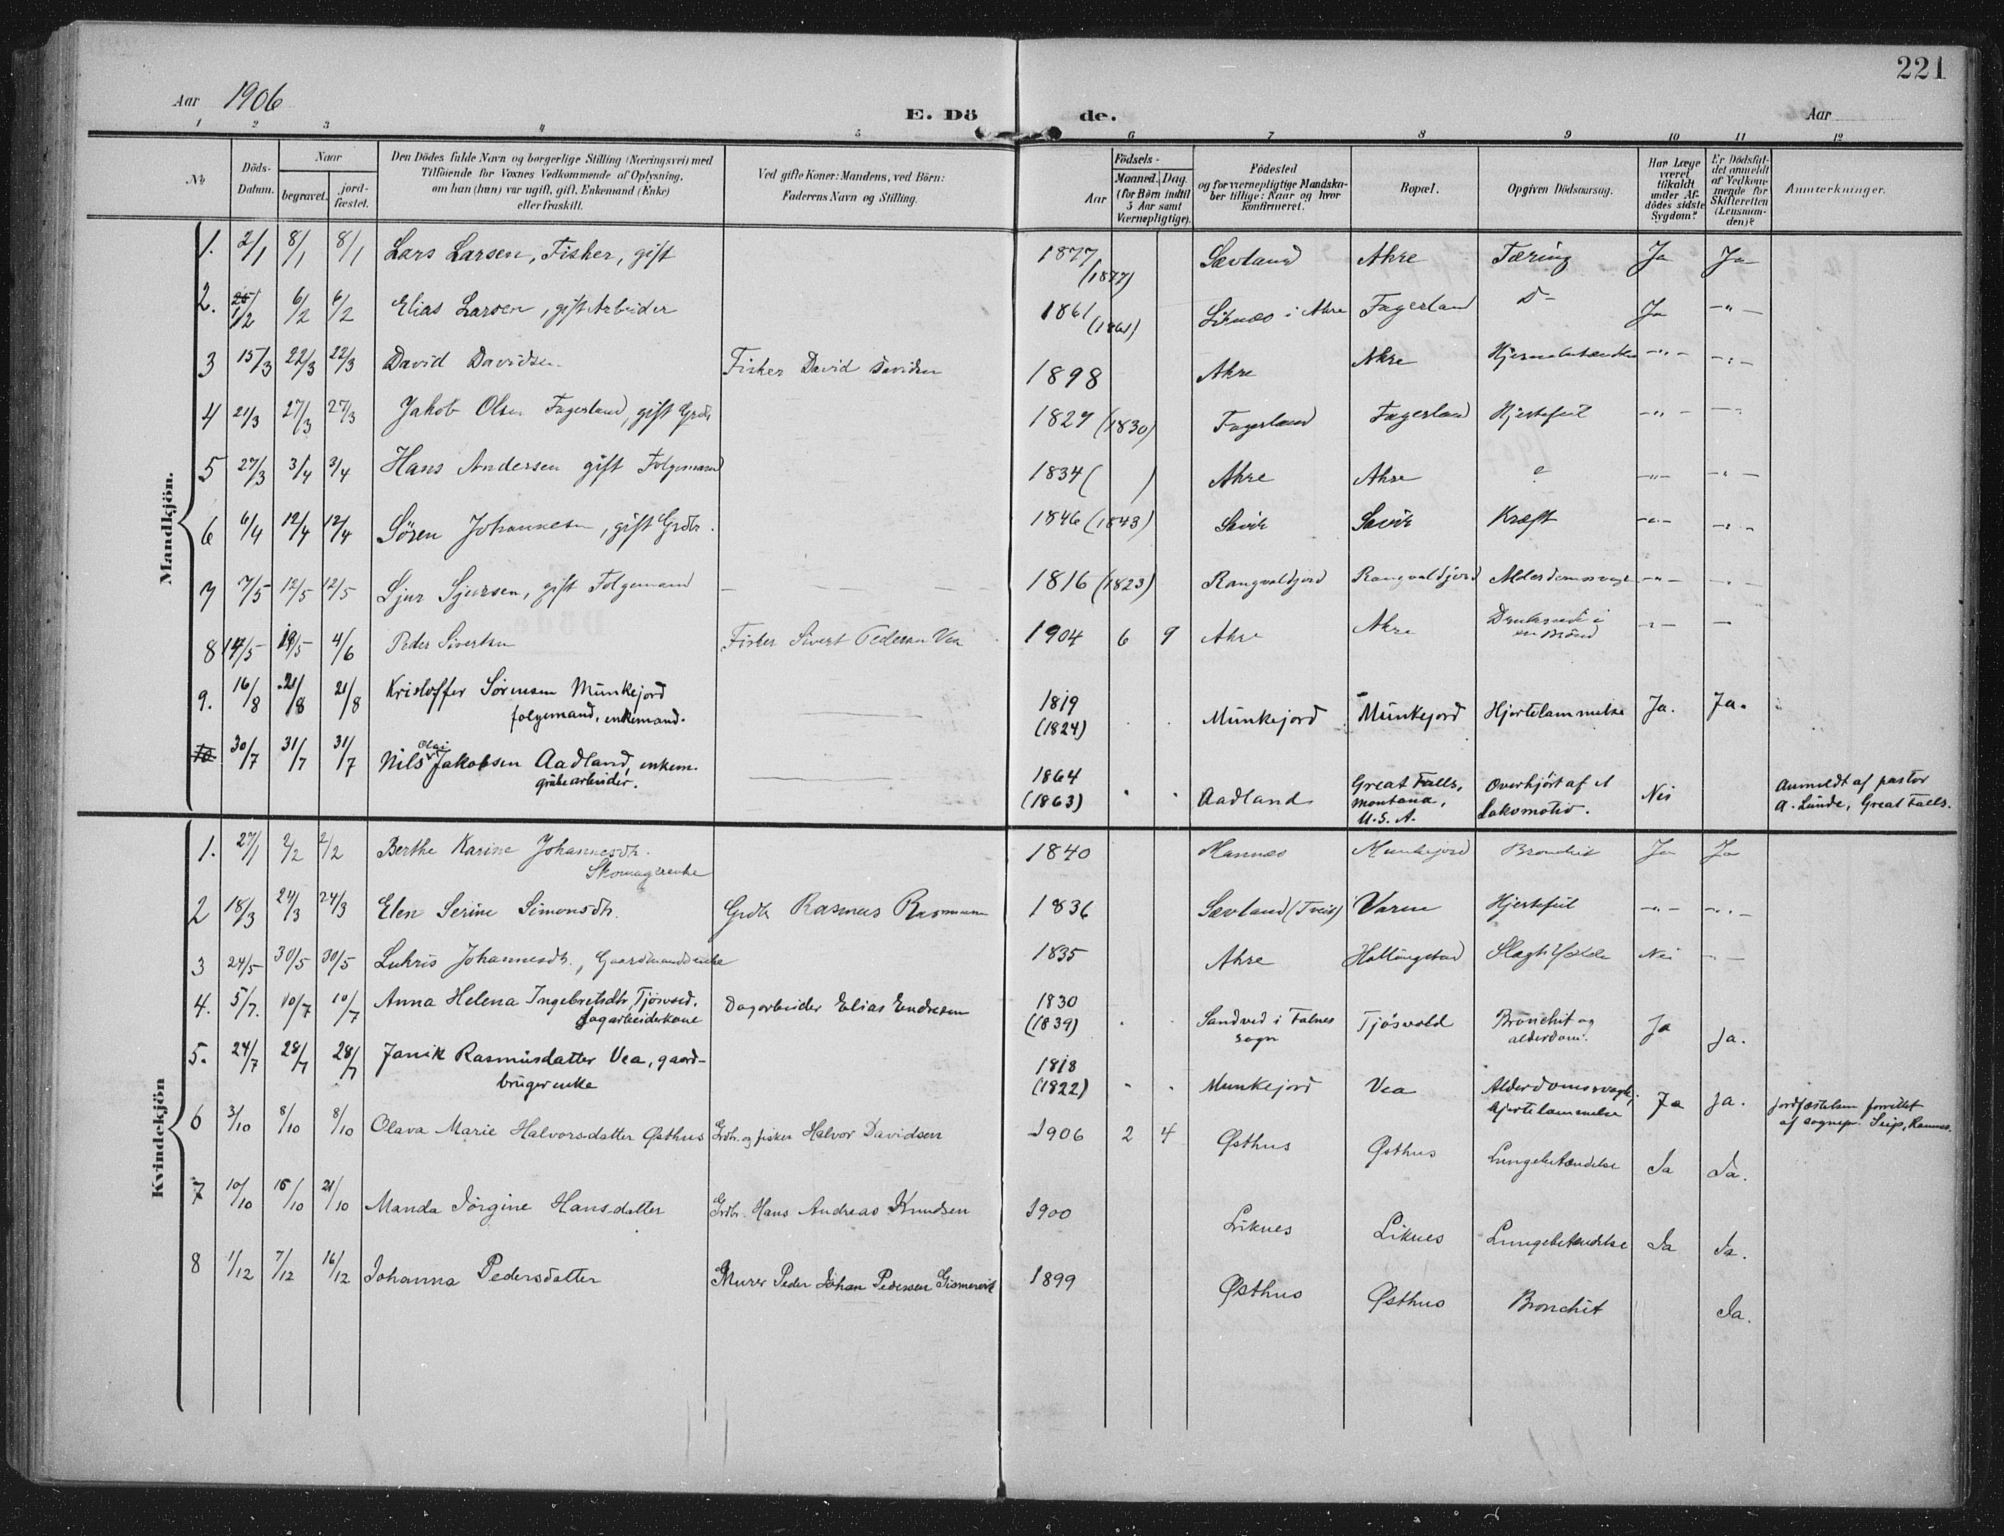 221
Aar 1906
E. Döde.
Aar
1 2 3 4 5 6 7 8 9 10 11 12
No
Döds-Datum.
Naar
begravet.
jord-fæstet.
Den Dödes fulde Navn og borgerlige Stilling (Næringsvei) med
Tilføiende for Voxnes Vedkommende af Oplysning,
om han (hun) var ugift, gift, Enkemand (Enke)
eller fraskilt.
Ved gifte Koner: Mandens, ved Börn:
Faderens Navn og Stilling.
Födsels-
Aar
Maaned. Dag.
(for Börn indtil
5 Aar samt
Værnepligtige).
Födested
og for værnepligtige Mandska-
ber tillige: Naar og hvor
konfirmeret.
Bopæl.
Opgiven Dödsaarsag.
Har Læge
været
tilkaldt
under Af-
dödes sidste
Sygdom?
Er Dödsfal-
det anmeldt
af Vedkom-
mende for
Skifteretten
(Lensman-
den)?
Anmærkninger.
Mandkjön.
1. 2/1 8/1 8/1 Lars Larsen, Fisker, gift 1877 (1877) Sævland Akre Tæring Ja Ja
2. 1/2 6/2 6/2 Elias Larsen, gift Arbeider 1861 (1861) Liknæs i Akre Fagerland D- Ja -"-
3 15/3 22/3 22/3 David Davidsen Fisker David Davidsen 1898 Akre Akre -"- -"-
4 21/3 27/3 27/3 Jakob Olsen Fagerland, gift Grdbr. 1829 (1830) Fagerland Fagerland Hjertefeil -"- -"-
5 27/3 3/4 3/4 Hans Andersen gift Folgemand 1834 ( ) Akre Akre -"- -"-
6 6/4 12/4 12/4 Sören Johannesen, gift Grdbr. 1846 (1843) Sævik Sævik Kræft -"- -"-
7 7/5 12/5 12/5 Sjur Sjursen, gift Folgemand 1816 (1823) Rangvaldjord Rangvaldjord Alderdomssvagh -"- -"-
8 14/5 19/5 4/6 Peder Sivertsen Fisker Sivert Pedersen Vea 1904 6 9 Akre Akre Druknede i
en Brönd -"- -
9. 16/8 21/8 21/8 Kristoffer Sørensen Munkejord
folgemand, enkemand. 1819
(1824) Munkejord Munkejord Hjertelammelse Ja. Ja.
10 30/7 31/7 31/7 Nils Olai Jakobsen Aadland, enkem.
grubearbeider. 1864
(1863) Aadland Great Falls,
Montana,
U.S.A. Overkjørt af et
Lokomotiv. Nei Anmeldt af pastor
A. Lunde, Great Falls.
Kvindekjön
1. 27/1 2/2 2/2 Berthe Karine Johannesdtr.
Skomagerenke 1840 Mannes Munkejord Bronchit Ja Ja
2 18/3 24/3 24/3 Elen Serine Simonsdtr. Grdbr Rasmus Rasmussen 1836 Sævland (Tveit) Varne Hjertefeil -"- -"-
3 24/5 30/5 30/5 Lukris Johannesdtr., Gaardmandsenke 1835 Akre Hallingstad Nei -"-
4. 5/7. 10/7 10/7 Anna Helena Ingebretsdtr, Tjösvold,
dagarbeiderkone Dagarbeider Elias Endresen 1830
(1839) Sandved i Falnes
sogn Tjøsvold Bronchit og
alderdom. Ja Ja.
5. 24/7 28/7 28/7 Janik Rasmusdatter Vea, gaard-
brugerenke 1818
(1822) Munkejord Vea Alderdomssvagh.,
hjertelammelse Ja Ja. Jordfæstelsen forrettet
af sognepr. Seip, Kannes.
6 3/10 8/10 8/10 Olava Marie Halvorsdatter Østhus Grdbr. og fisker Halvor Davidsen 1906 2 4 Østhus Østhus Lungebetændelse Ja Ja.
7 10/10 15/10 21/10 Manda Jørgine Hansdatter Grdbr. Hans Andreas Knudsen 1900 Liknes Liknes Lungebetændelse Ja Ja.
8 1/12 7/12 16/12 Johanna Pedersdatter Murer Peder Johan Pedersen Gismervik 1899 Østhus Østhus Bronchit Ja.